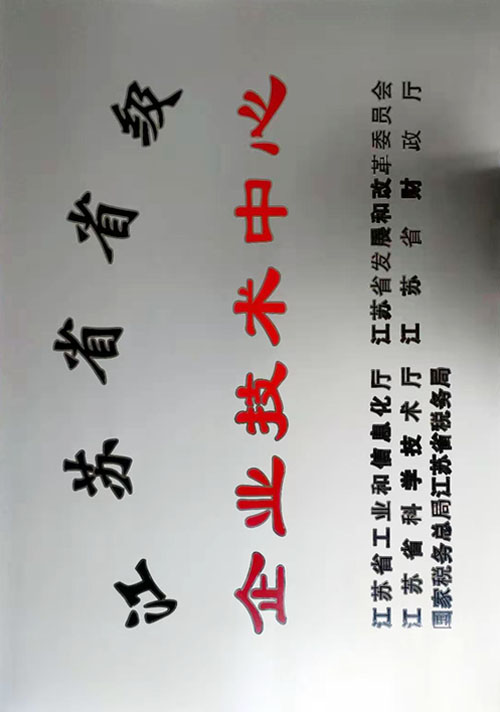 江苏省省级
企业技术中心
江苏省工业和信息化厅 江苏省发展和改革委员会
江苏省科学技术厅 江苏省财政厅
国家税务总局江苏省税务局